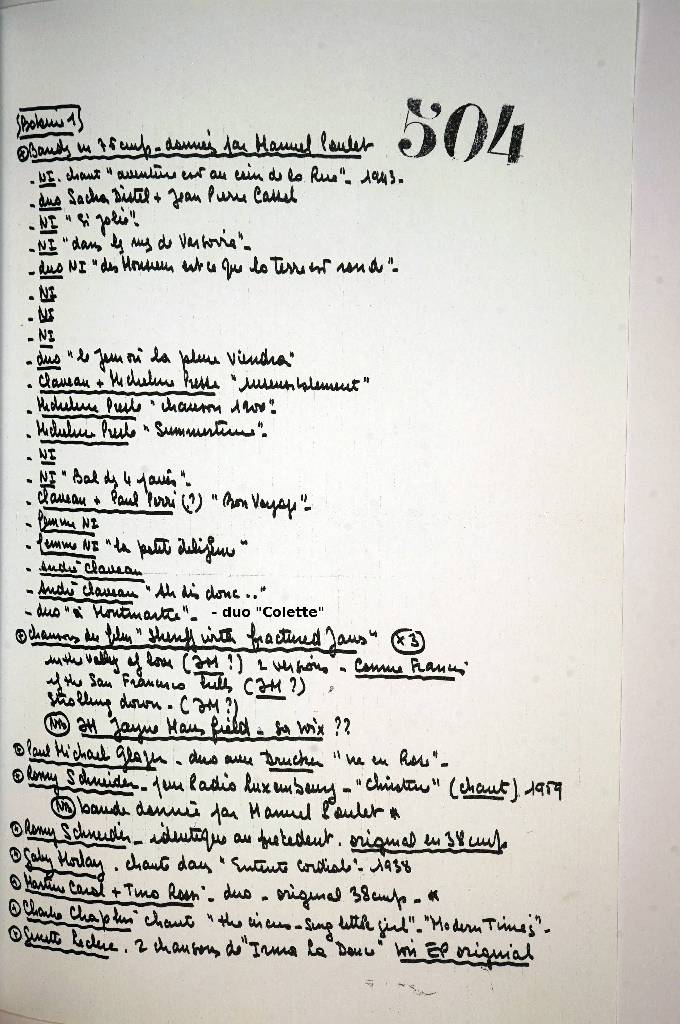 504
Bobine 1
Bandes en 76 cm/p - données par Manuel Poulet
- NI. chant "aventure est au coin de la Rue" - 1943.
- duo Sacha Distel + Jean Pierre Cassel
- NI "Si jolie".
- NI "dans les rues de Varsovie".
- duo NI "des Monsieur est ce que la Terre est ronde".
- NI
- NI
- NI
- duo "le Jour où la pluie Viendra"
- Claveau + Micheline Presle "insensiblement"
- Micheline Presle "chanson 1900".
- Micheline Presle "Summertime".
- NI
- NI "Bal des 4 Jeudis".
- Claveau + Paul Perri (?) "Bon Voyage".
- femme NI
- femme NI "la petite diligence"
- André Claveau
- André Claveau "Ah dis donc.."
- duo "à Montmartre". - duo "Colette"
chansons du film "Sheriff with fractured Jaws" x3
in the Valley of love (JM ?) 2 versions - Connie Francis
if the San Francisco hills (JM ?)
Strolling down - (JM ?)
JM Jayne Mansfield - sa voix ??
Paul Michael Glaser - duo avec Drucker "vie en Rose".
Romy Schneider - pour Radio Luxembourg - "Christine" (chant) 1959
bande donnée par Manuel Poulet *
Romy Schneider - identique au précédent. original en 38 cm/p
Gaby Morlay. chante dans "Entente Cordiale". 1938
Martine Carol + Tino Rossi - duo - original 38 cm/p - *
Charlie Chaplin chante "the circus - Sing little girl" - "Modern Times" -
Ginette Leclerc. 2 chansons de "Irma La Douce" voir EP original